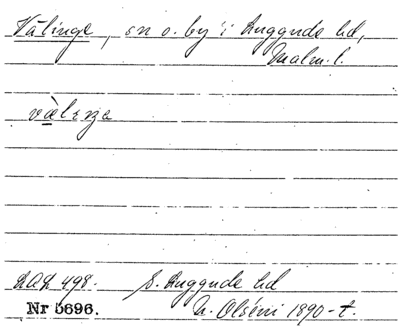 Välinge, sn o. by i Luggude hd,
Malm. l.
vælıŋa
LAL 498. S. Luggude hd
Nr 5696. N. Olséni 1890-t.